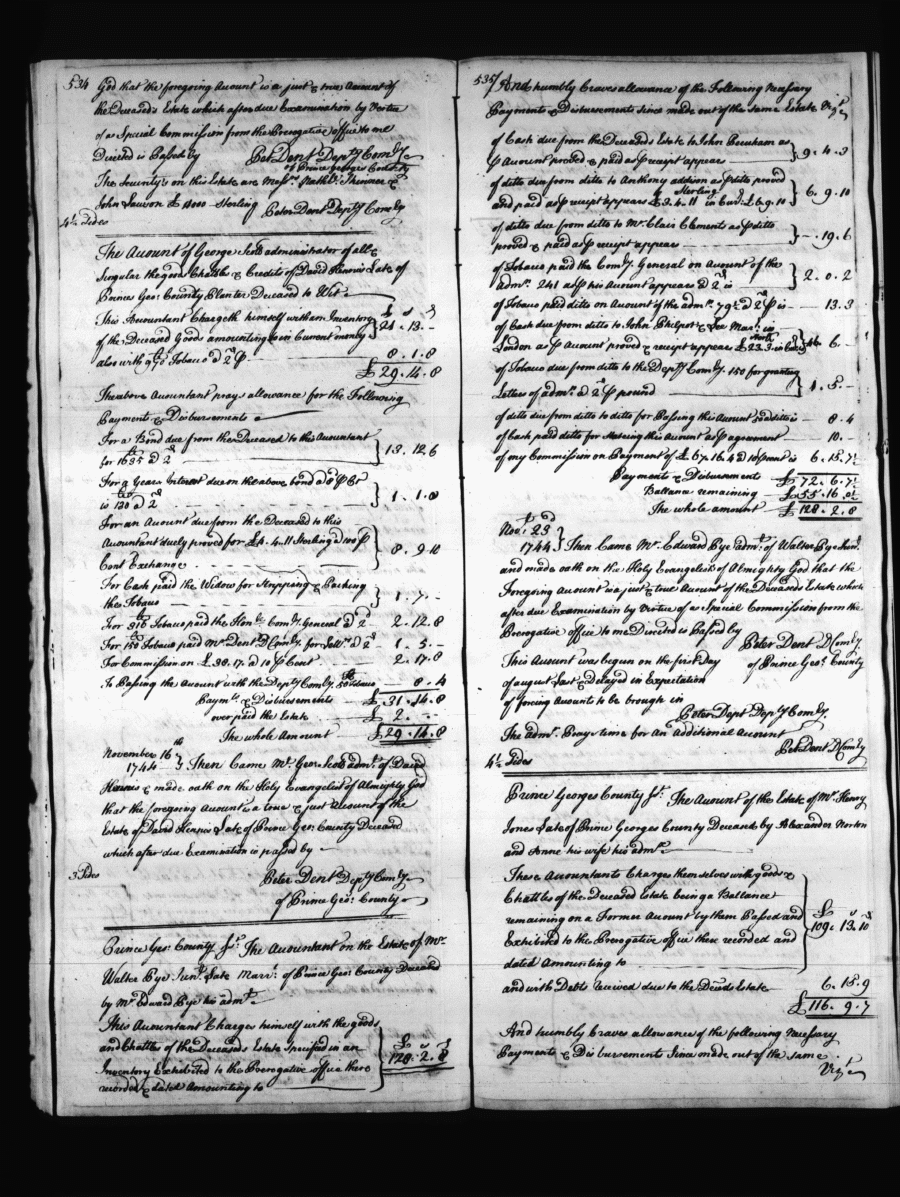 534
God that the foregoing Account is a just & true Account of
the Deceaseds Estate which after due Examination by Vertue
of a Special Commission from the Prerogative office to me
Directed is Passed by Pet Dent Depty Comry
of Prince Georges County
The Security's on this Estate are Messrs Nathll &
John Lawson £ 1000 Sterling Peter Dent Depty Comry
4 1/2 Sides
The Account of George Scott administrator of all &
Singular the goods Chattles & Credits of David Harris Late of
Prince Geos County Planter Deceased to Wit
This Accountant Chargeth himself with an Inventory
of the Deceased Goods amounting to in Current money } 21 . 13 . -
also with 970 Tobacco @ 2d P 8 . 1 . 8
£ 29 . 14 . 8
The above Accountant prays allowance for the Following
Payments & Disbursements
For a Bond due from the Deceased to this Accountant
for 1635 @ 2d } 13 . 12 . 6
For a Years Interest due on the above bond @ 8 P Ct
is 130 @ 2d } 1 . 1 . 8
For an Account due from the Deceased to this
Accountant duely proved for £4 . 4 . 11 Sterling @ 100 P
Cent Exchange } 8 . 9 . 10
For Cash paid the Widow for Stripping & Packing
the Tobacco } 1 . 7 . -
For 316 Tobacco paid the Honble Comry General @ 2d 2 . 12 . 8
For 150 Tobacco paid Mr Dent D Comry for @ 2d 1 . 5 . -
For Commission on £ 28 . 17 . @ 10 P Cent 2 . 17 . 8
To Passing the Account with the Depty Comry 50 Tobacco - 8 . 4
Paymts & Disbursements £ 31 . 14 . 8
over paid the Estate £ 2 . - . -
The whole Amount £ 29 . 14 . 8
November 16th
1744 } Then Came Mr Geo Scott admr of David
Harris & made oath on the Holy Evangelist of Almighty God
that the foregoing Account is a true & just Account of the
Estate of David Harris Late of Prince Geos County Deceased
which after due Examination is passed by
3 Sides
Peter Dent Depty Comry
of Prince Geos County
Prince Geos County Sst The Accountant on the Estate of Mr
Walter Pye Junr Late Marr of Prince Geos County Deceased
by Mr Edward Pye his admr
This Accountant Charges himself with the goods
and Chattles of the Deceaseds Estate Specified in an
Inventory Exhibited to the Prerogative office there
recorded & dated Amounting to } £ 128 . 2 . 8
535
And humbly Craves allowance of the Following Necessary
Payments & Disbursements Since made out of the same Estate Vizt
of Cash due from the Deceaseds Estate to John Beenham as
P Account proved & paid as P receipt appears } 9 . 4 . 3
of ditto due from ditto to Anthony addison as P ditto proved
and paid as P receipt appears £ 3 . 4 . 11 Sterling in Curt £ 6 . 9 . 10 } 6 . 9 . 10
of ditto due from ditto to Mr Clair Clements as P ditto
proved & paid as P receipt appears } - . 19 . 6
of Tobacco paid the Comry General on Account of the
Admr 241 as P his Account appears @ 2d is } 2 . 0 . 2
of Tobacco paid ditto on Account of the admr 79 1/2 @ 2d P is - 13 . 3
of Cash due from ditto to John Philpot & Lee Mar in
London as P Account proved & receipt appears £ 23 . 3 Sterlg in Curcy } 46 . 6 . -
of Tobacco due from ditto to the Depty Comry 150 for granting
Letters of admr @ 2d P pound } 1 . 5 . -
of ditto due from ditto to ditto for Passing this Account 50 ditto is - 8 . 4
of Cash paid ditto for Stateing this Account as P agreement - 10 . -
of my Commission on Payment of £ 67 . 16 . 4 @ 10 P cent is 6 . 15 . 7 1/2
Payments & Disbursements £ 72 . 6 . 7 1/2
Ballance remaining £ 55 . 16 . 0 1/2
The whole amount £ 128 . 2 . 8
Novr 23d
1744 } Then Came Mr Edward Pye admr of Walter Pye Junr
and made oath on the Holy Evangelist of Almighty God that the
Foregoing Account is a just & true Account of the Deceaseds Estate which
after due Examination by Virtue of a Special Commission from the
Prerogative office to me Directed is Passed by
Peter Dent D Comry
of Prince Geos County
This Account was begun on the first Day
of august Last & Delayed in Expectation
of forcing Accounts to be brough in
Peter Dept Depty Comry.
The admr Prays time for An Additional Account
Pet Dent D Comry
4 1/2 Sides
Prince Georges County Sst. The Account of the Estate of Mr Henry
Jones Late of Prince Georges County Deceased by Alexander Norton
and Anne his wife his admr
These Accountants Charges themselves with goods &
Chattles of the Deceased Estate being a Ballance
remaining on a Former Account by them Passed and
Exhibited to the Prerogative office there recorded and
dated Amounting to } £ 109 . 13 . 10
and with Debts received due to the Deceds Estate 6 . 15 . 9
£ 116 . 9 . 7
And humbly Craves allowance of the following Necessary
Payments & Disbursements Since made out of the same
Vizt